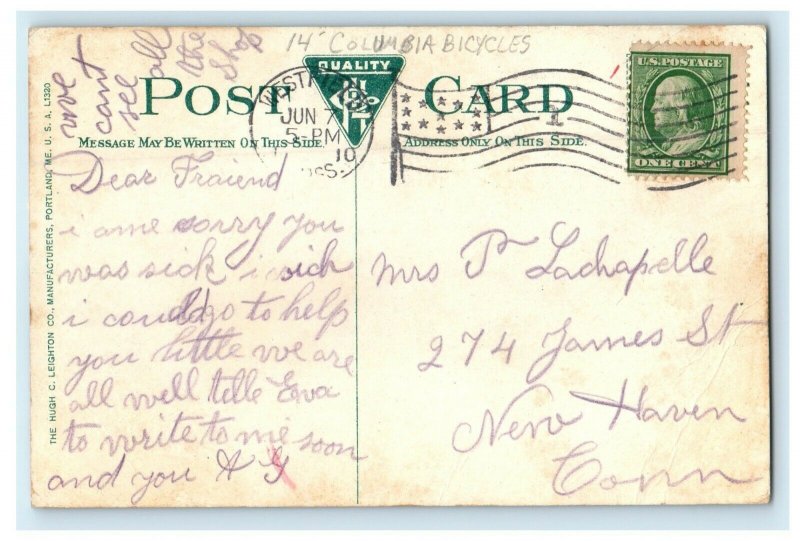 14" COLUMBIA BICYCLES
we
cant
see all
the
Shop
QUALITY
POST CARD
U.S. POSTAGE
ONE CENT
WESTFIELD
JUN 7
5-PM
10
MESSAGE MAY BE WRITTEN ON THIS SIDE.
ADDRESS ONLY ON THIS SIDE.
THE HUGH C. LEIGHTON CO., MANUFACTURERS, PORTLAND, ME. U. S. A. L1320
Dear Fraiend
i ame sorry you
was sick i wich
i could go to help
you little we are
all well telle Eva
to write to me soon
and you A G
Mrs P Lachapelle
274 James St
New Haven
Conn